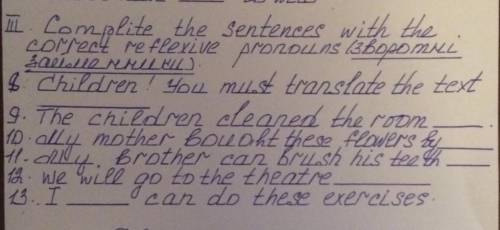 III. Complite the sentences with the
correct reflexive pronouns (зворотни
займенники).
8. Children! You must translate the text
9. The children cleaned the room ____.
10. My mother bought these flowers by ____
11. My. Brother can brush his teeth ____
12. We will go to the theatre ________
13. I ____ can do these exercises.